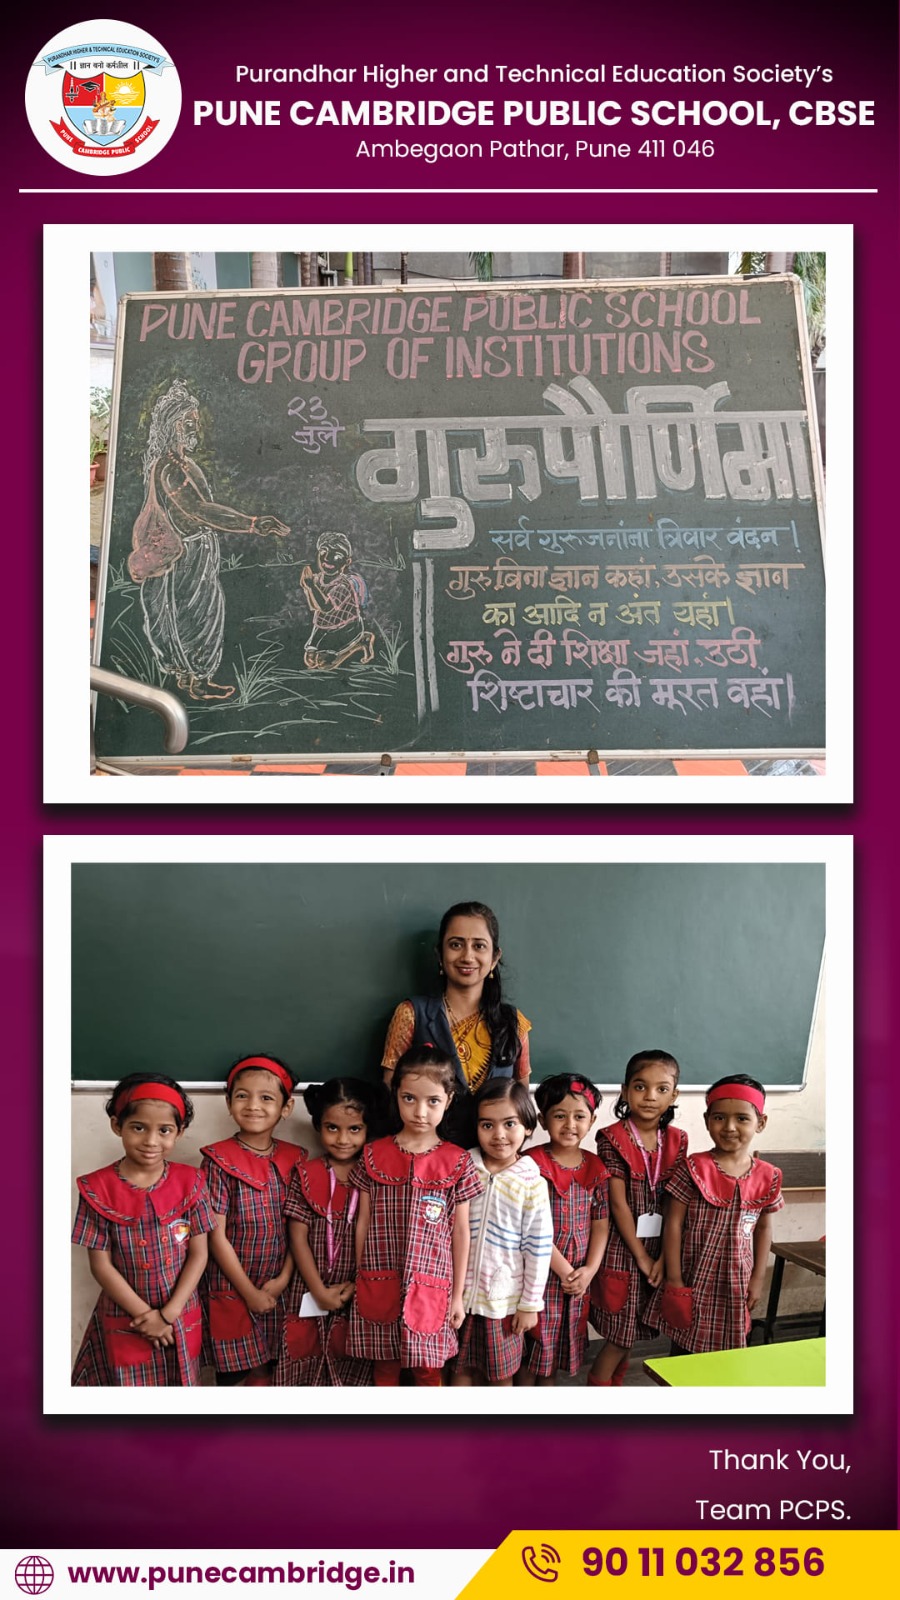 PURANDHAR HIGHER & TECHNICAL EDUCATION SOCIETY'S
|| ज्ञान बनो कर्मशील ||
PUNE CAMBRIDGE PUBLIC SCHOOL
Purandhar Higher and Technical Education Society's
PUNE CAMBRIDGE PUBLIC SCHOOL, CBSE
Ambegaon Pathar, Pune 411 046
PUNE CAMBRIDGE PUBLIC SCHOOL
GROUP OF INSTITUTIONS
२३
जुलै
गुरुपौर्णिमा
सर्व गुरुजनांना त्रिवार वंदन !
गुरु बिना ज्ञान कहां, उसके ज्ञान
का आदि न अंत यहां।
गुरु ने दी शिक्षा जहां, उठी
शिष्टाचार की मूरत वहां।
Thank You,
Team PCPS.
www.punecambridge.in
90 11 032 856